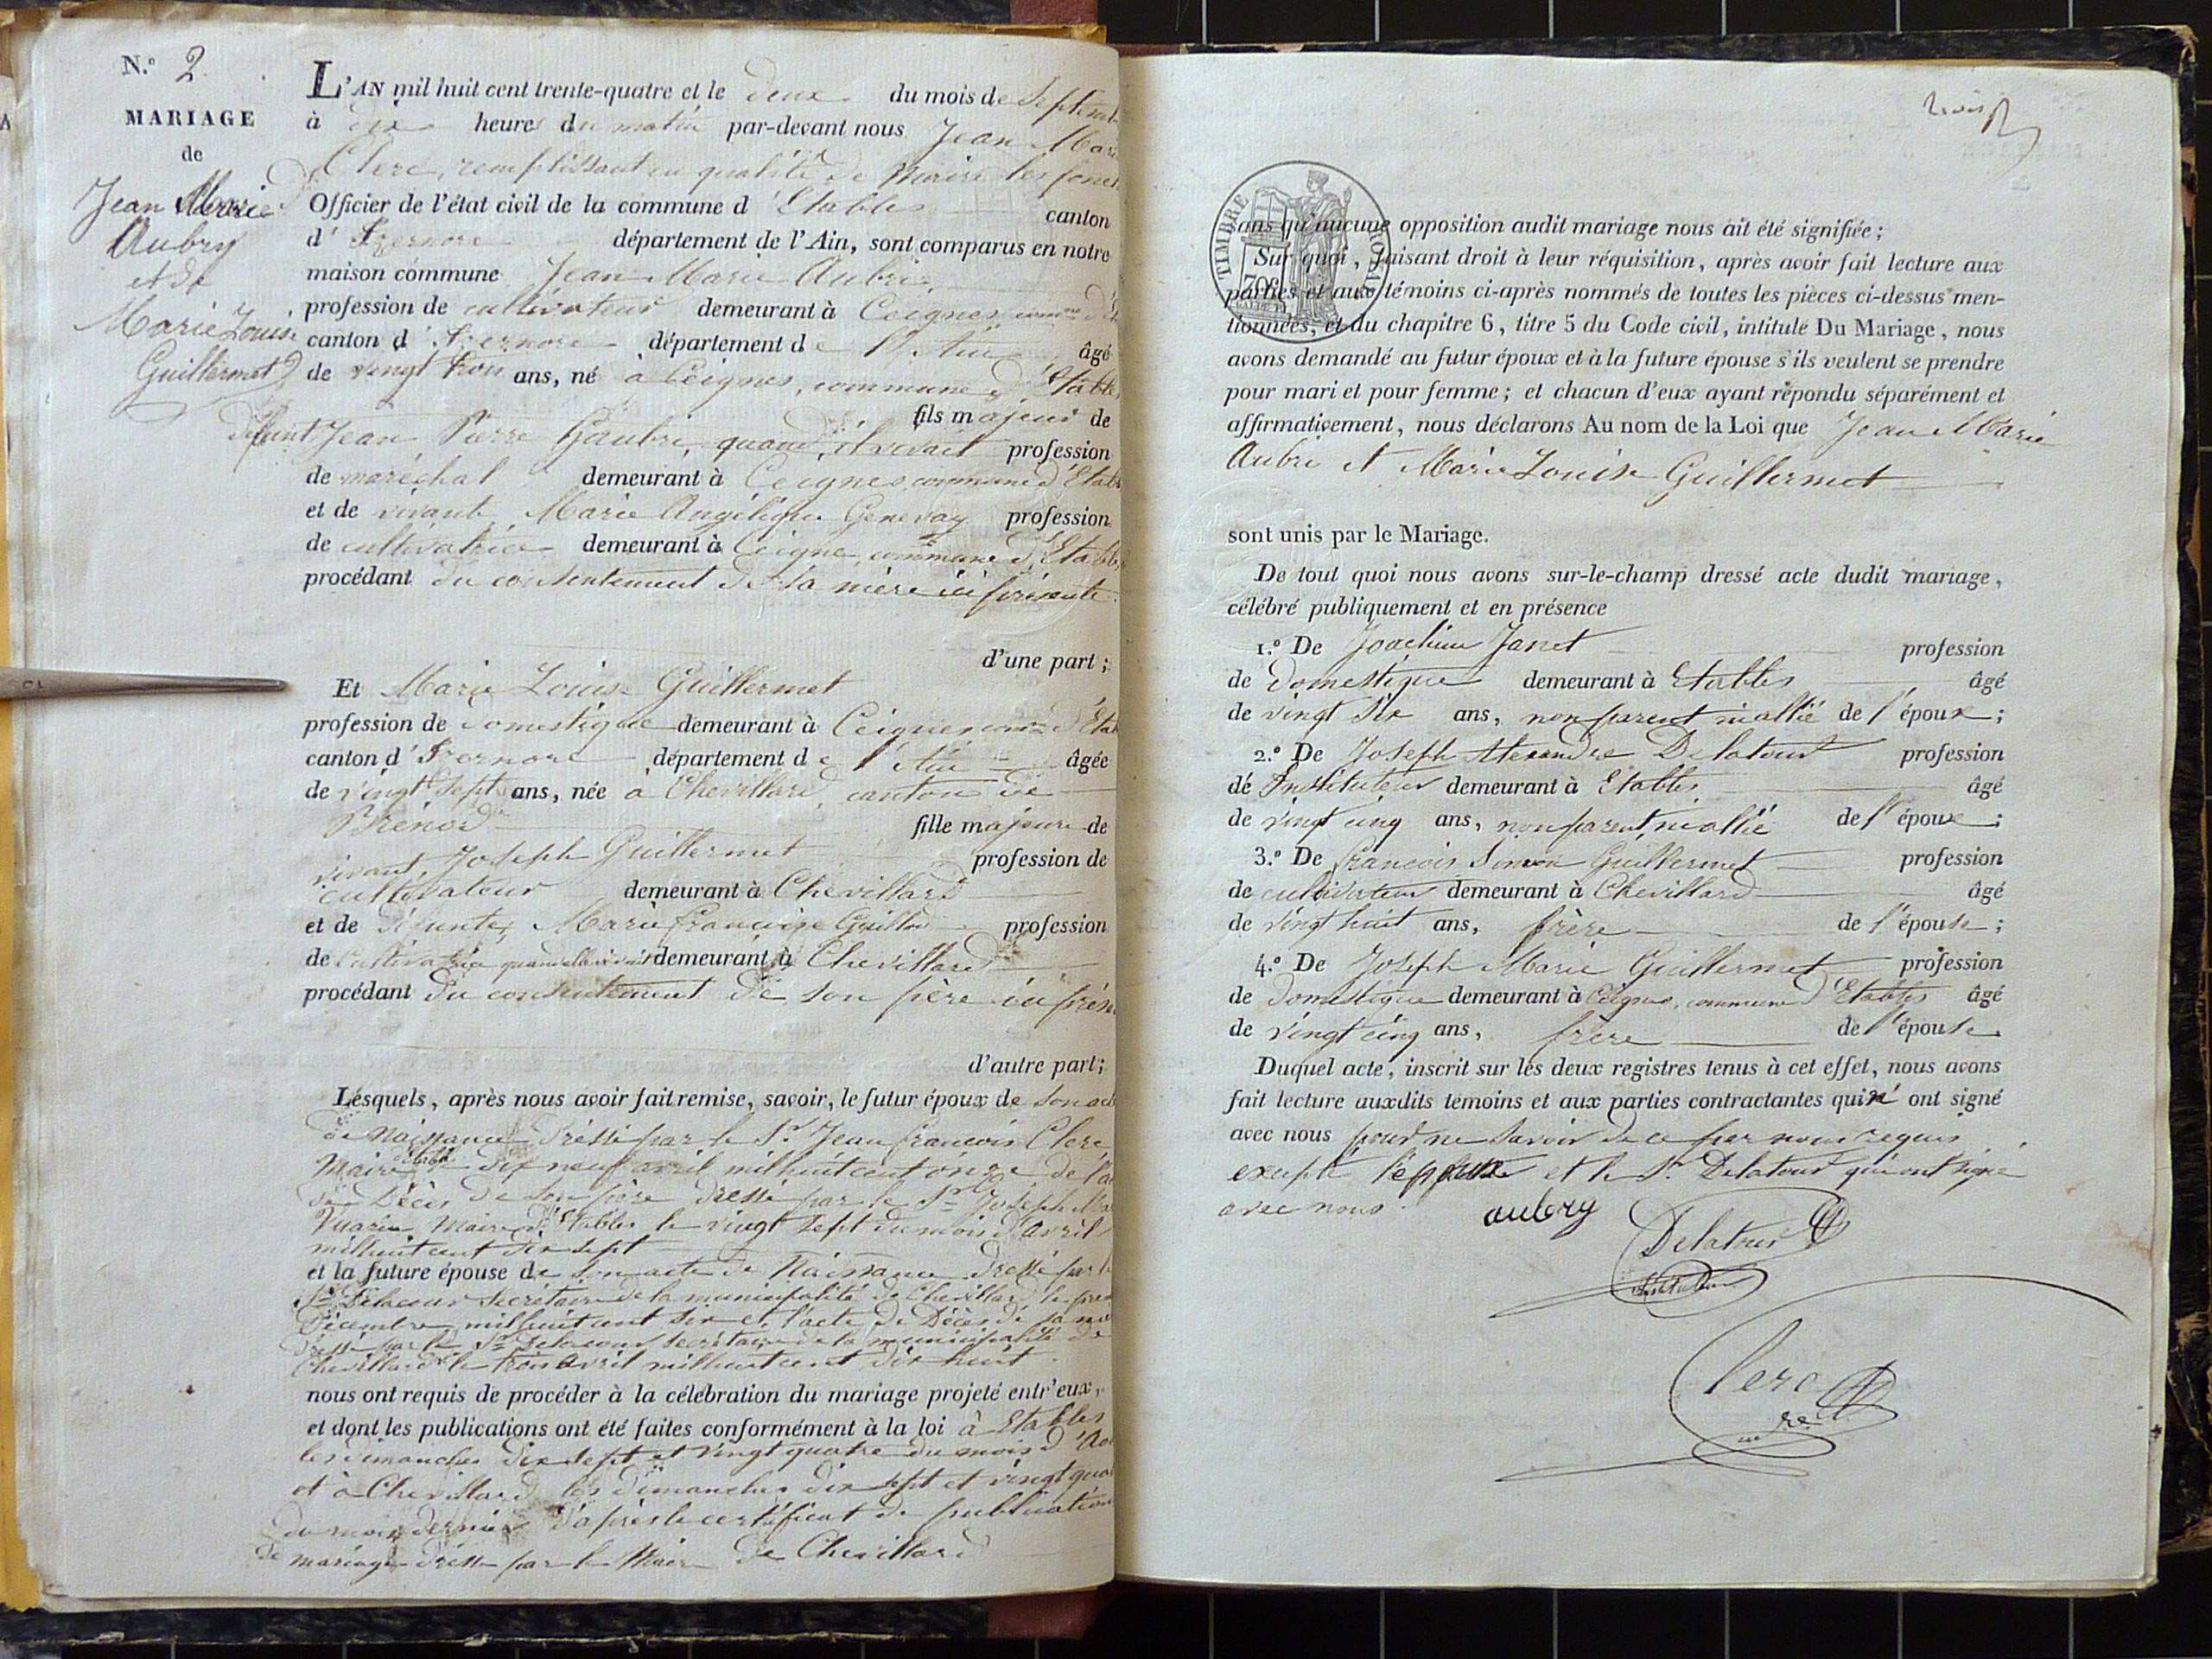 N.º 2
MARIAGE
de
Jean Marie
Aubry
et de
Marie Louise
Guillermet
L'AN mil huit cent trente-quatre et le deux du mois de Septemb
à dix heures du matin par-devant nous Jean Marie
Clerc, remplissant en qualité de Maire les fonct
Officier de l'état civil de la commune d'Etables canton
d'Izernore département de l'Ain, sont comparus en notre
maison commune Jean Marie Aubri,
profession de cultivateur demeurant à Ceignes, comne d'Et
canton d'Izernore département de l'Ain âgé
de vingt trois ans, né à Ceignes, commune d'Etable
fils majeur de
défunt Jean Pierre Gaubri, quand il vivait profession
de maréchal demeurant à Ceignes commune d'Etab
et de vivante Marie Angélique Genevay profession
de cultivatrice demeurant à Ceigne, commune d'Etabl
procédant du consentement de sa mère ici présente.
d'une part;
Et Marie Louise Guillermet
profession de domestique demeurant à Ceignes comne d'Etab
canton d'Izernore département de l'Ain âgée
de vingt sept ans, née à Chevillard, canton de
Brénod fille majeure de
vivant Joseph Guillermet profession de
cultivateur demeurant à Chevillard
et de défunte Marie Françoise Guillon profession
de cultivatrice quand elle vivait demeurant à Chevillard
procédant du consentement de son père ici prése
d'autre part;
Lesquels, après nous avoir fait remise, savoir, le futur époux de son act
de Naissance dréssé par le Sr. Jean françois Clerc
Maire d'Etabl le dix neuf avril mil huit cent onze de l'a
de Décès de son père dressé par le Sr Joseph Ma
Maire d'Etables le vingt sept du mois d'avril
mil huit cent dix sept
et la future épouse de son acte de Naissance dressé par l
Sr Delacour secrétaire de la municipalité de Chevillard le prem
décembre mil huit cent six et l'acte de Décès de sa mè
dressé par le Sr Delacour secrétaire de la municipalité de
Chevillard le trois avril mil huit cent dix huit.
nous ont requis de procéder à la célébration du mariage projeté entr'eux,
et dont les publications ont été faites conformément à la loi à Etables
les dimanches dix sept et vingt quatre du mois d'Ao
et à Chevillard les dimanches dix sept et vingt quat
du mois dernier d'après le certificat de publication
de mariage dressé par le Maire de Chevillard
sans qu'aucune opposition audit mariage nous ait été signifiée;
TIMBRE ROYAL
Sur quoi, faisant droit à leur réquisition, après avoir fait lecture aux
parties et aux témoins ci-après nommés de toutes les pièces ci-dessus men-
tionnées, et du chapitre 6, titre 5 du Code civil, intitulé Du Mariage, nous
avons demandé au futur époux et à la future épouse s'ils veulent se prendre
pour mari et pour femme; et chacun d'eux ayant répondu séparément et
affirmativement, nous déclarons Au nom de la Loi que Jean Marie
Aubri et Marie Louise Guillermet
sont unis par le Mariage.
De tout quoi nous avons sur-le-champ dressé acte dudit mariage,
célébré publiquement et en présence
1.º De Joachim Janet profession
de domestique demeurant à Etables âgé
de vingt six ans, non parent ni allié de l'époux;
2.º De Joseph Alexandre Delatour profession
de Instituteur demeurant à Etables âgé
de vingt cinq ans, non parent, ni allié de l'époux;
3.º De françois Simon Guillermet profession
de cultivateur demeurant à Chevillard âgé
de vingt huit ans, frère de l'épouse;
4.º De Joseph Marie Guillermet profession
de domestique demeurant à Ceignes, commune d'Etables âgé
de vingt cinq ans, frère de l'épouse
Duquel acte, inscrit sur les deux registres tenus à cet effet, nous avons
fait lecture auxdits témoins et aux parties contractantes qui n'ont signé
avec nous pour ne savoir de ce par nous requis
excepté l'époux et le Sr. Delatour qui ont signé
avec nous.
aubry
Delatour
Instituteur
Clerc